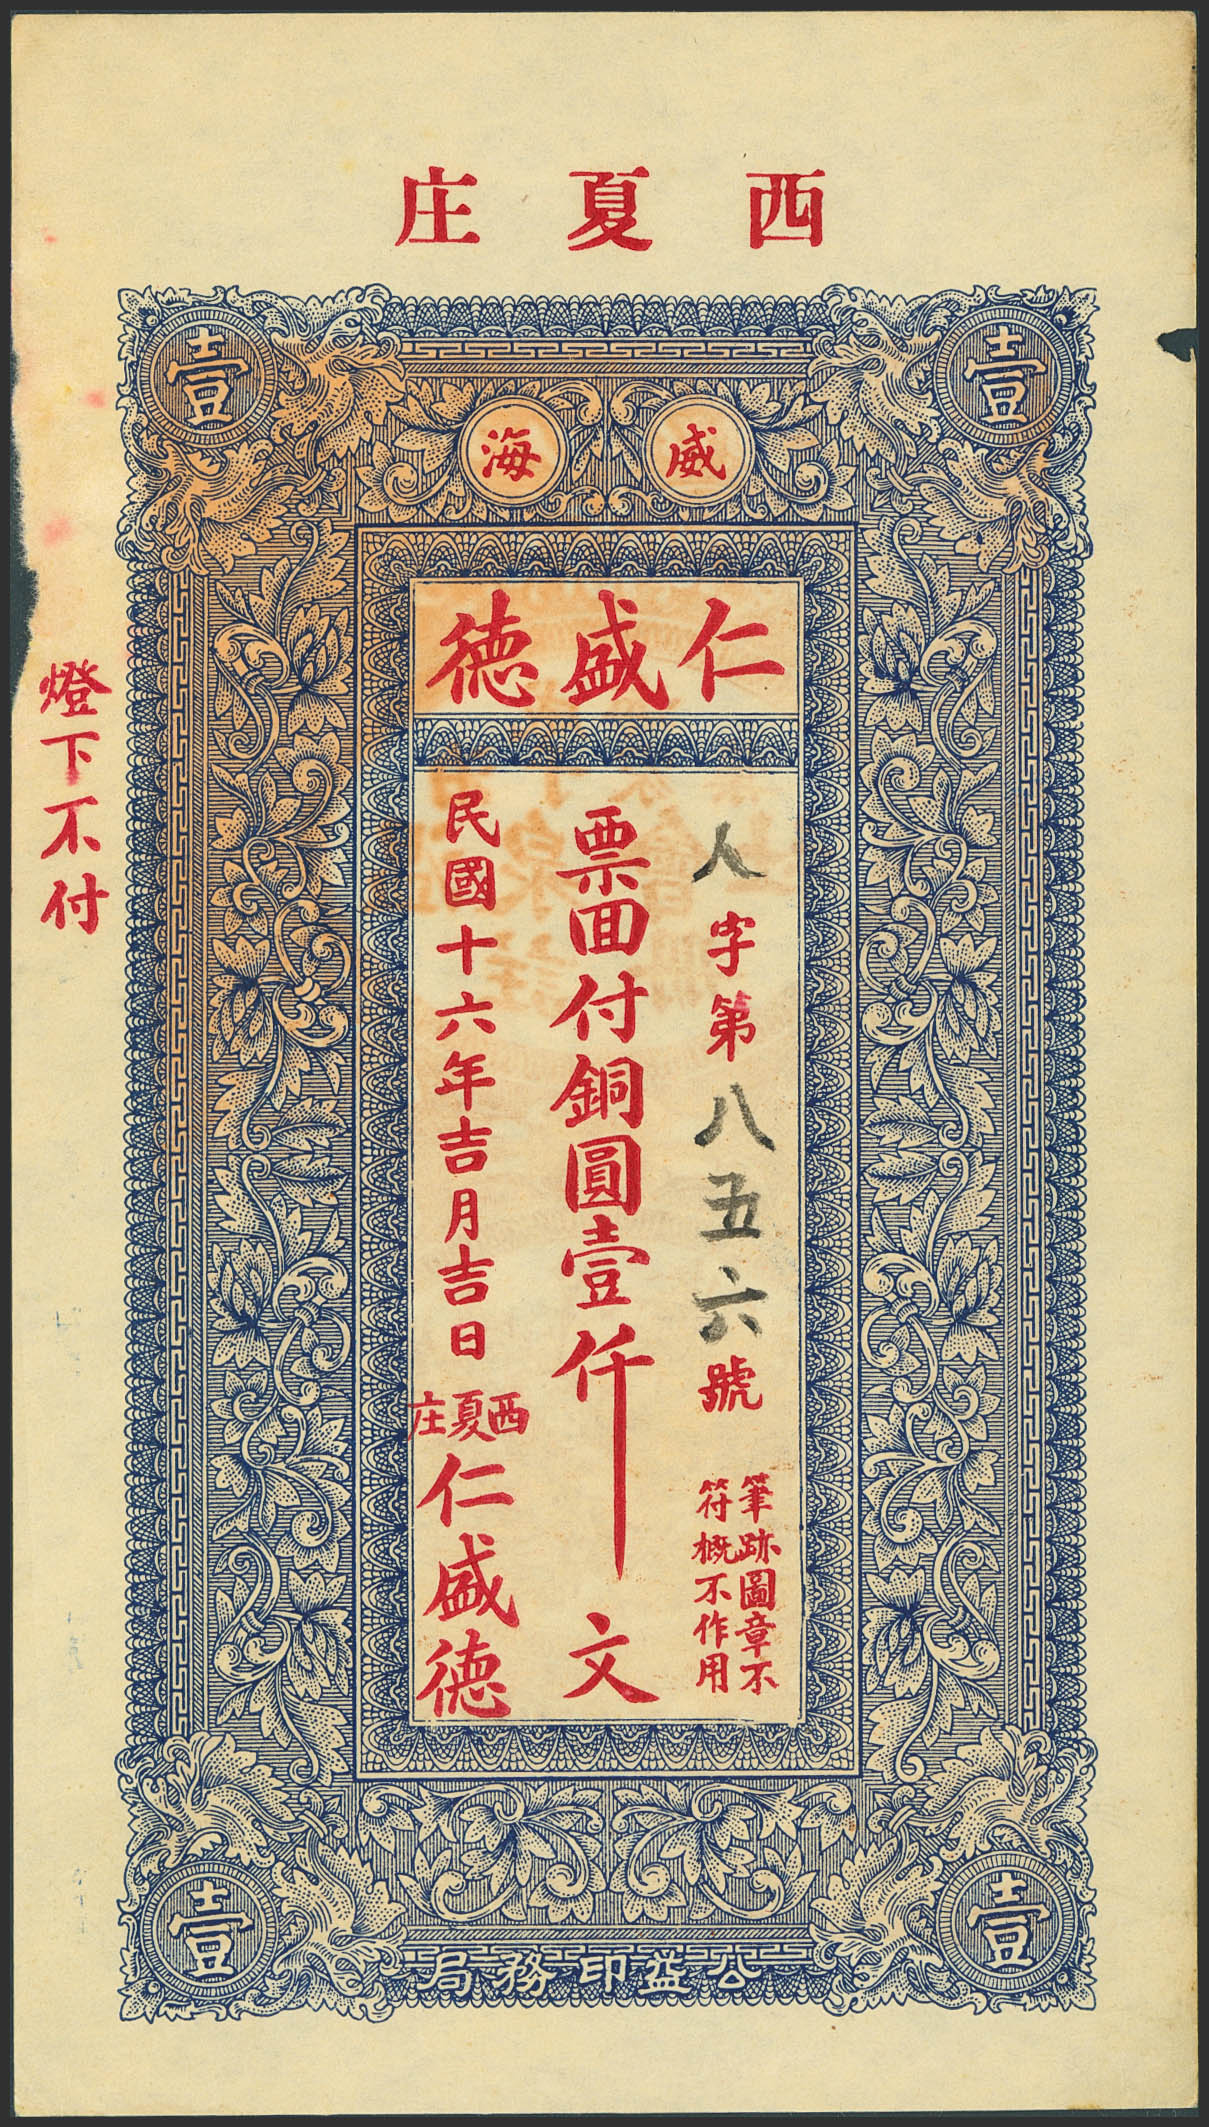 西夏庄
壹 壹
威海
仁盛德
人字第八五六號
筆跡圖章不
符概不作用
票面付銅圓壹仟文
民國十六年吉月吉日
西夏庄
仁盛德
燈下不付
壹 壹
公益印務局